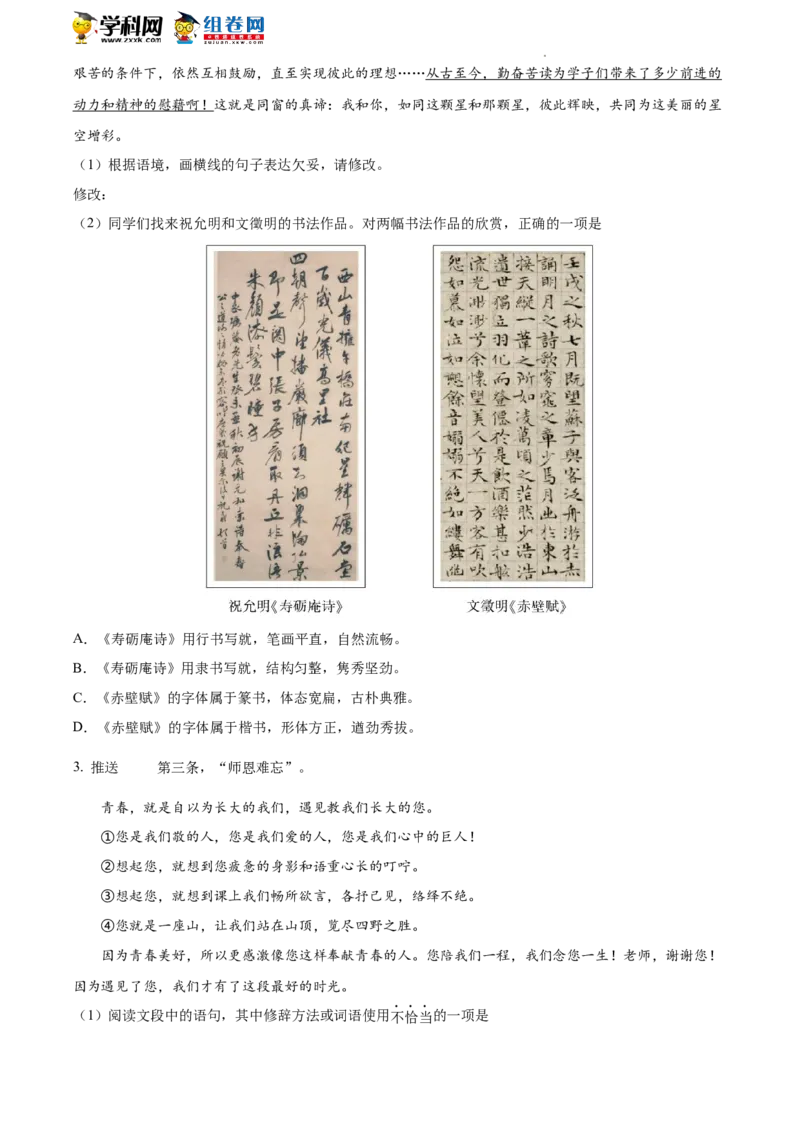 学科网 组卷网
www.zxxk.com zujuan.xkw.com
艰苦的条件下，依然互相鼓励，直至实现彼此的理想……从古至今，勤奋苦读为学子们带来了多少前进的
动力和精神的慰藉啊！这就是同窗的真谛：我和你，如同这颗星和那颗星，彼此辉映，共同为这美丽的星
空增彩。
（1）根据语境，画横线的句子表达欠妥，请修改。
修改：
（2）同学们找来祝允明和文徵明的书法作品。对两幅书法作品的欣赏，正确的一项是
壬戌之秋七月既望蘇子與客泛舟游於赤
誦明月之詩歌窈窕之章少焉月出於東山
接天縱一葦之所如凌萬頃之茫然浩浩
遺世獨立羽化而登僊於是飲酒樂甚扣舷
流光渺渺兮余懷望美人兮天一方客有吹
怨如慕如泣如愬餘音嫋嫋不絕如縷舞
祝允明《寿砺庵诗》 文徵明《赤壁赋》
A. 《寿砺庵诗》用行书写就，笔画平直，自然流畅。
B. 《寿砺庵诗》用隶书写就，结构匀整，隽秀坚劲。
C. 《赤壁赋》的字体属于篆书，体态宽扁，古朴典雅。
D. 《赤壁赋》的字体属于楷书，形体方正，遒劲秀拔。
3. 推送 第三条，“师恩难忘”。
青春，就是自以为长大的我们，遇见教我们长大的您。
①您是我们敬的人，您是我们爱的人，您是我们心中的巨人！
②想起您，就想到您疲惫的身影和语重心长的叮咛。
③想起您，就想到课上我们畅所欲言，各抒己见，络绎不绝。
④您就是一座山，让我们站在山顶，览尽四野之胜。
因为青春美好，所以更感激像您这样奉献青春的人。您陪我们一程，我们念您一生！老师，谢谢您！
因为遇见了您，我们才有了这段最好的时光。
（1）阅读文段中的语句，其中修辞方法或词语使用不恰当的一项是